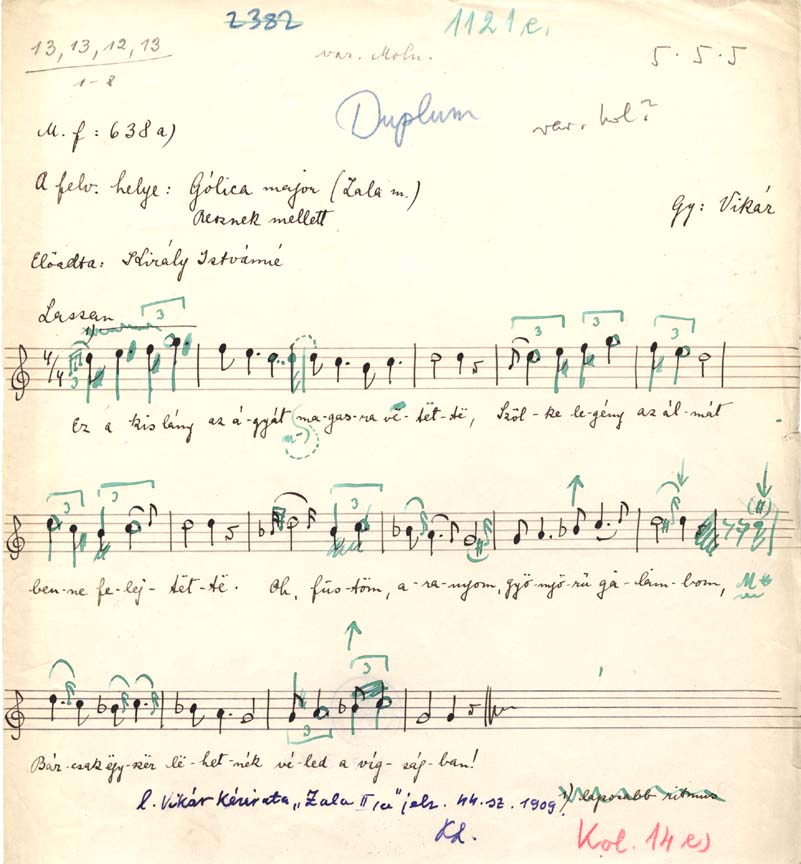 2382
1121 e.
13, 13, 12, 13
1-8
var. Moln.
5. 5. 5
Duplum
var. hol?
M. f: 638a)
A felv. helye: Gólica major (Zala m.)
Resznek mellett
Gy: Vikár
Előadta: Király Istvánné
Lassan
1)
3
4/4
3
3
3
3
Ez a kis lány az á-gyát ma-gas-ra vë-tët-të, Szöl-ke le-gény az ál-mát
m-
3
3
3
ben-ne fe-lej-tët-të. Oh, füs-töm, a-ra-nyom, gyö-nyö-rű ga-lam-bom,
3
3
Bár-csak ëgy-szër lë-het-nék vé-led a víg-ság-ban!
l. Vikár kézirata „Zala II/a" jelz. 44. sz. 1909.
1) laposabb ritmus
Kol. 14 e)